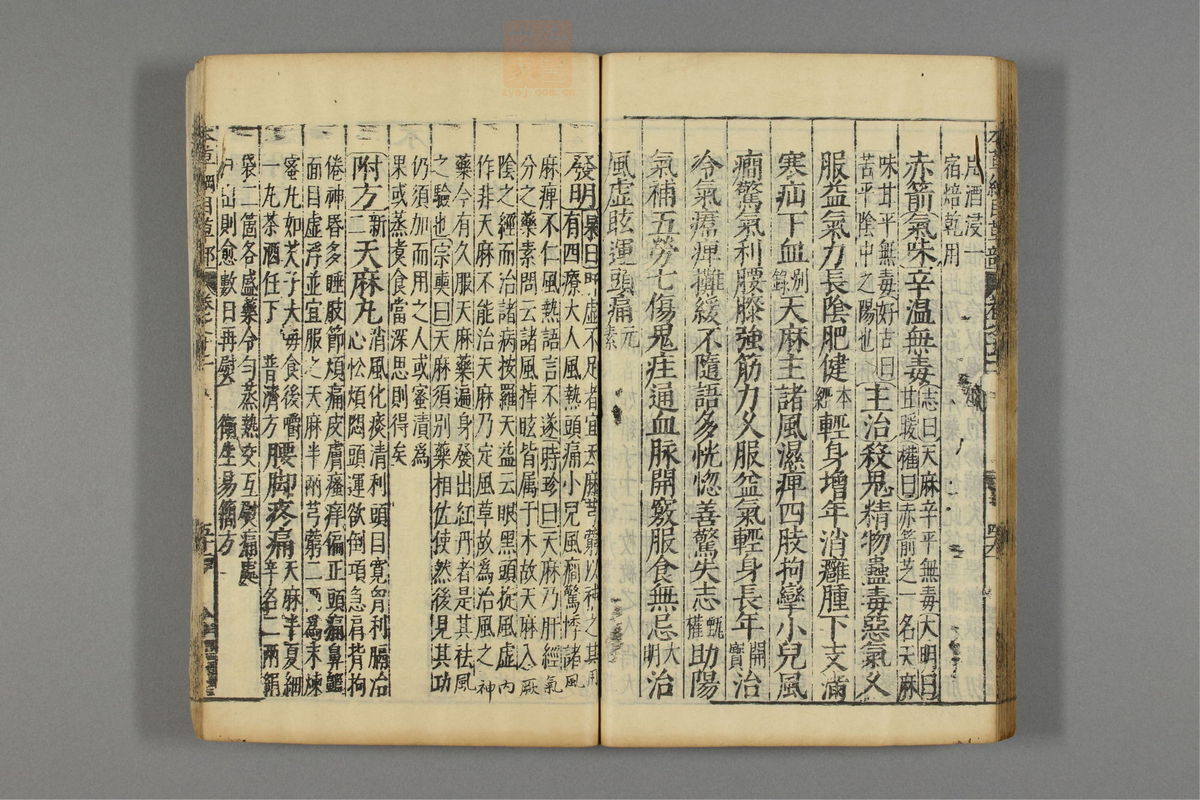 片酒浸一
宿焙乾用
赤箭氣味辛温無毒志曰天麻辛平無毒大明曰
甘暖權曰赤箭芝一名天麻
味甘平無毒好古曰
苦平陰中之陽也主治殺鬼精物蠱毒惡氣久
服益氣力長陰肥健本經輕身增年消癰腫下支滿
寒疝下血别錄天麻主諸風濕痺四肢拘攣小兒風
癇驚氣利腰膝強筋力久服益氣輕身長年開寶治
冷氣𤸷痺攤緩不隨語多恍惚善驚失志甄權助陽
氣補五勞七傷鬼疰通血脉開竅服食無忌大明治
風虛眩運頭痛元素
發明杲曰肝虛不足者宜天麻芎藭以補之其用
有四療大人風熱頭痛小兒風癇驚悸諸風
麻痺不仁風熱語言不遂時珍曰天麻乃肝經氣
分之藥素問云諸風掉眩皆属于木故天麻入厥
陰之經而治諸病按羅天益云眼黑頭旋風虛内
作非天麻不能治天麻乃定風草故為治風之神
藥今有久服天麻藥遍身發出紅丹者是其祛風
之驗也宗奭曰天麻須别藥相佐使然後見其功
仍須加而用之人或蜜漬為
果或蒸煑食當深思則得矣
附方新二天麻丸消風化痰清利頭目寛胷利膈治
心忪煩悶頭運欲倒項急肩背拘
倦神昏多睡肢節煩痛皮膚瘙痒偏正頭痛鼻齆
面目虛浮並宜服之天麻半兩芎藭二兩為末煉
蜜丸如芡子大毎食後嚼
一丸茶酒任下 普濟方腰脚疼痛天麻半夏細
辛各二兩絹
袋二箇各盛藥令勻蒸熱交互熨痛處
汗出則愈數日再熨 衛生易簡方